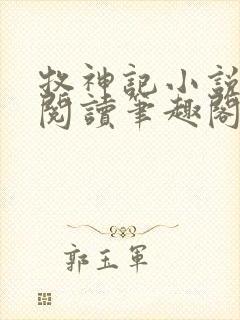 牧神記小說
閱讀筆趣閣
郭玉軍